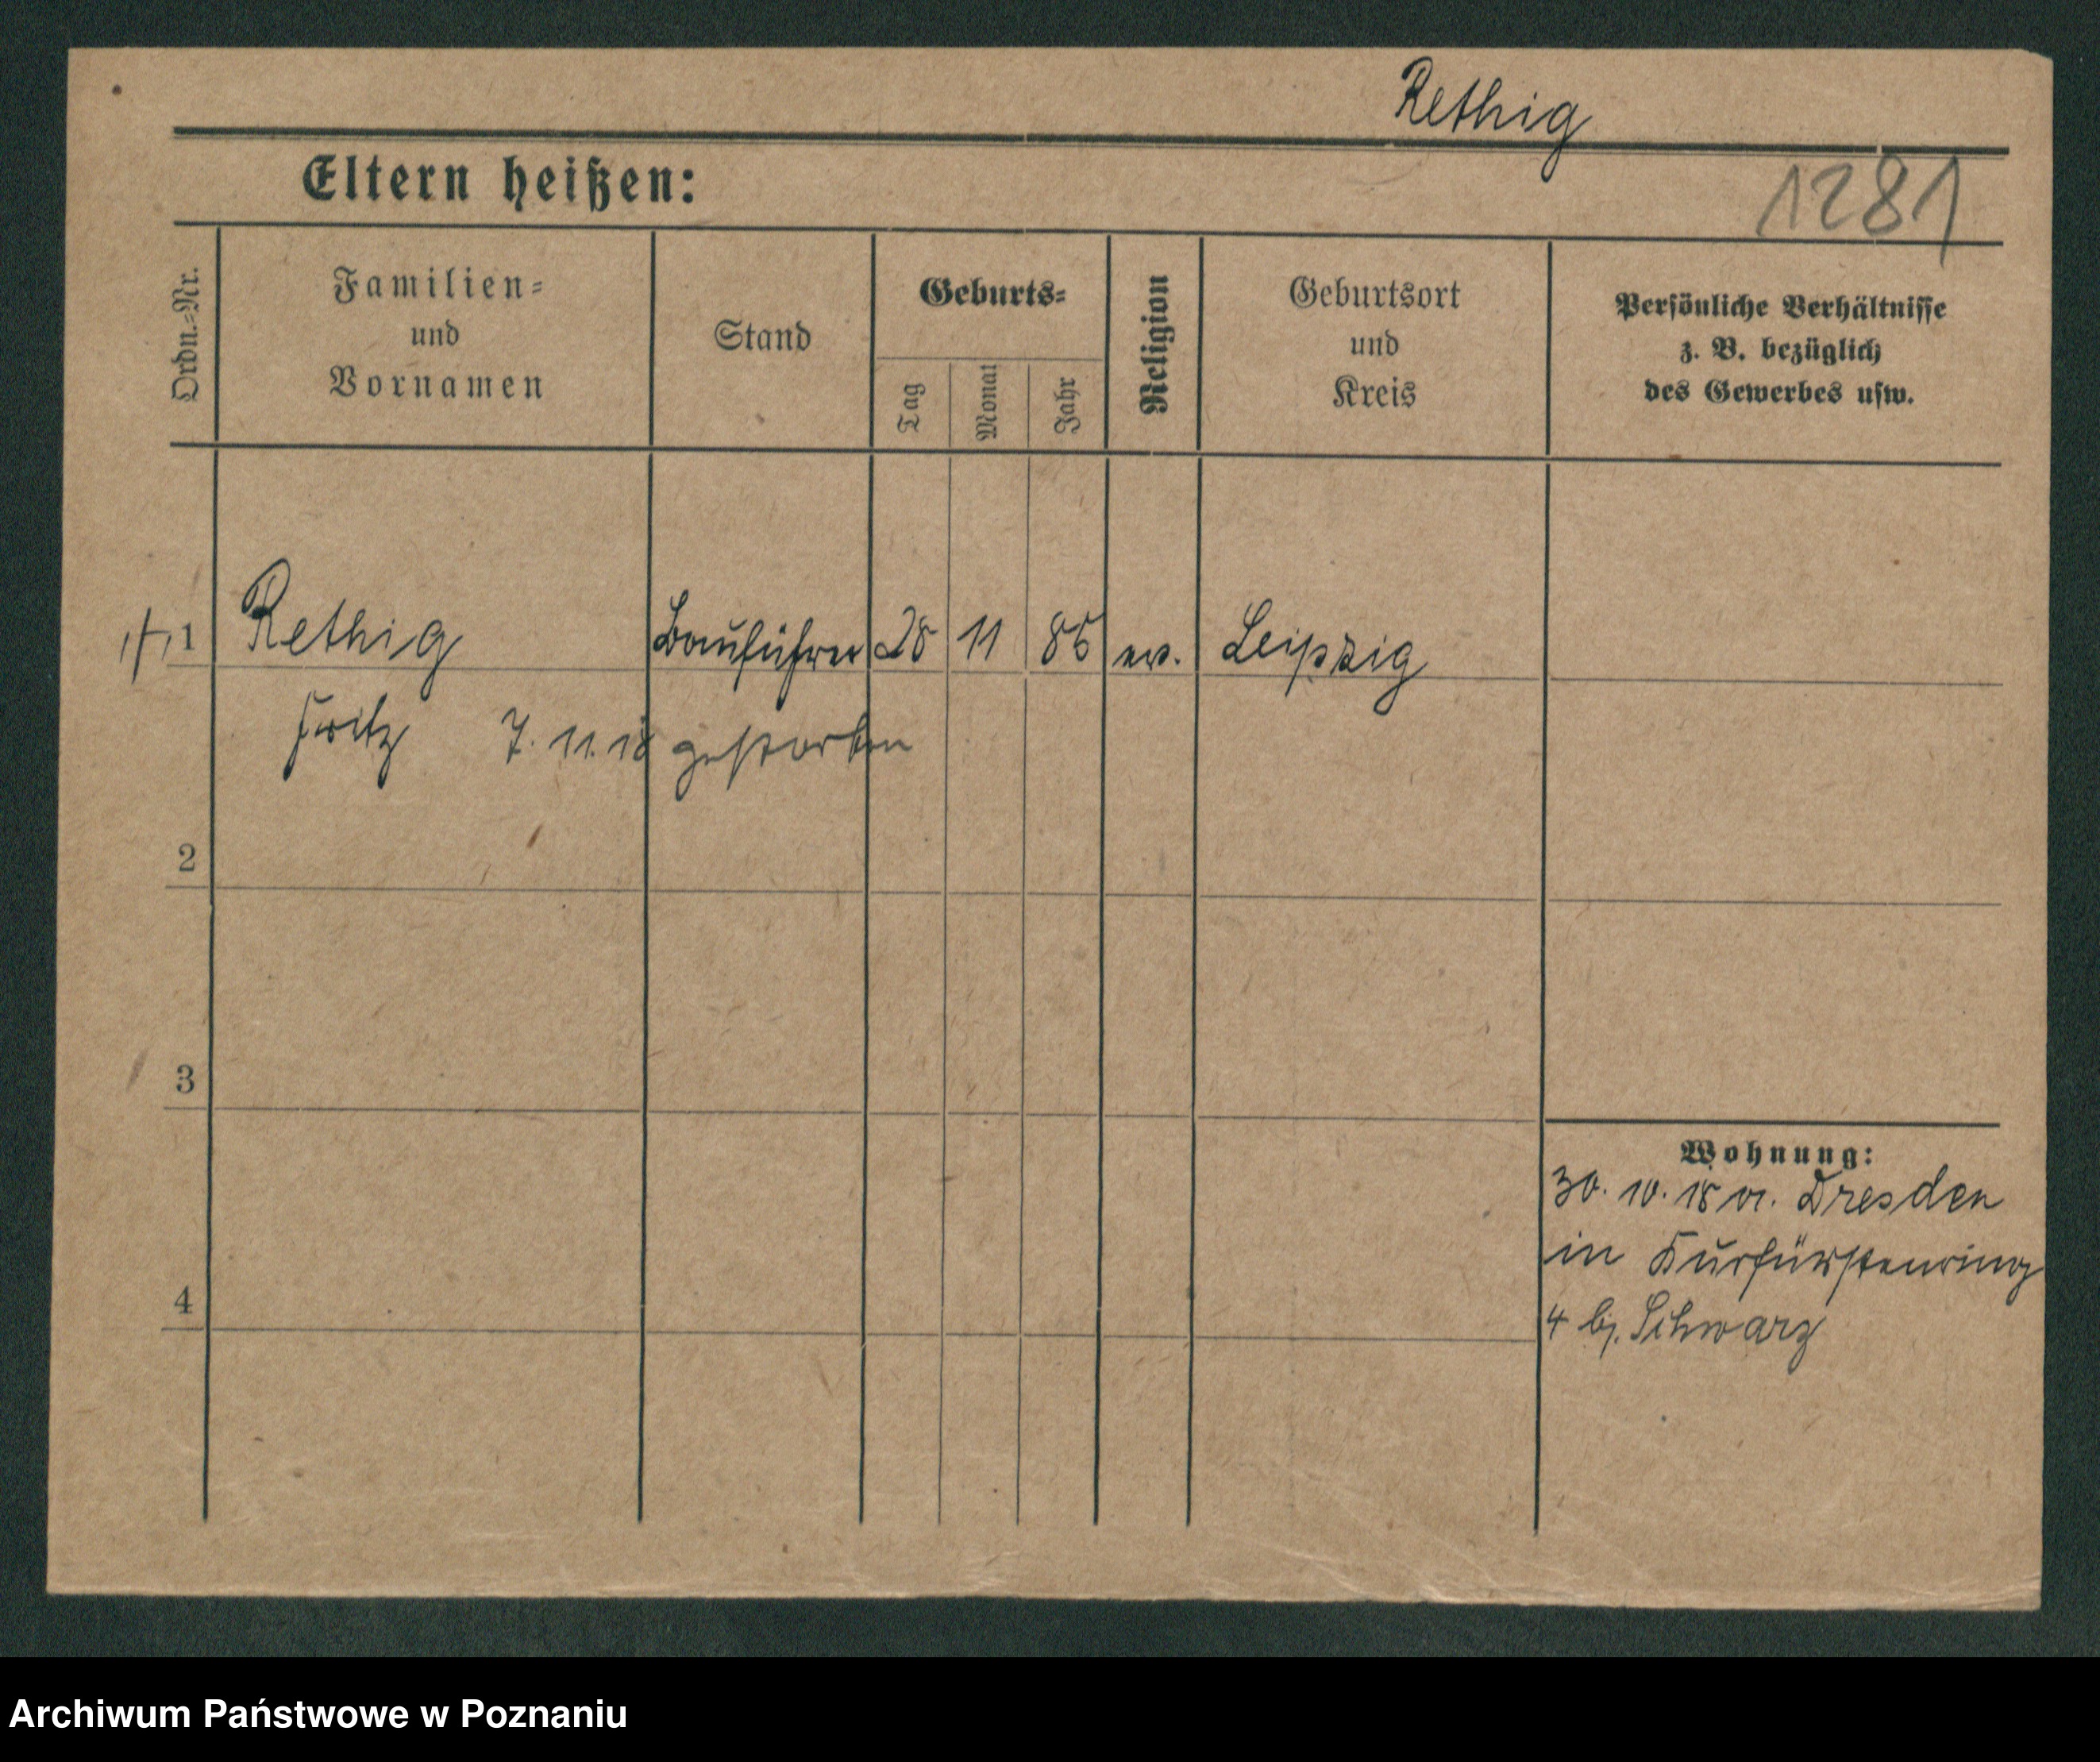 Rethig
Eltern heißen:
1281
Ordn.=Nr.
Familien=
und
Vornamen
Stand
Geburts=
Tag
Monat
Jahr
Religion
Geburtsort
und
Kreis
Persönliche Verhältnisse
z. B. bezüglich
des Gewerbes usw.
1 Rethig Bauführer 28 11 86 ev. Leipzig
Fritz 7. 11. 18 gestorben
2
3
Wohnung:
30. 10. 18 v. Dresden
in Kurfürstenring
4 b. Schwarz
4
Archiwum Państwowe w Poznaniu